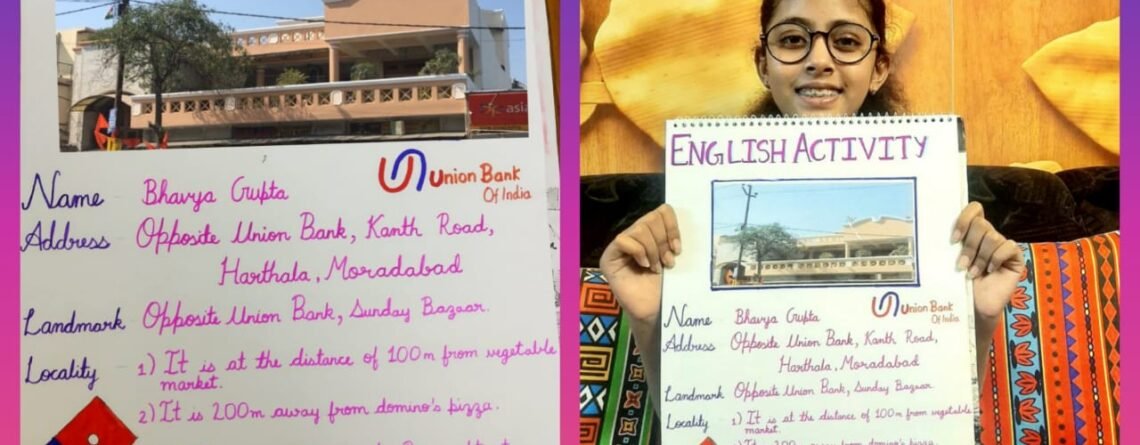 asia
Name Bhavya Gupta
Union Bank
Of India
Address Opposite Union Bank, Kanth Road,
Harthala, Moradabad
Landmark Opposite Union Bank, Sunday Bazaar.
Locality 1) It is at the distance of 100m from vegetable
market.
2) It is 200m away from domino's pizza.
ENGLISH ACTIVITY
Name Bhavya Gupta
Union Bank
Of India
Address Opposite Union Bank, Kanth Road,
Harthala, Moradabad
Landmark Opposite Union Bank, Sunday Bazaar
Locality 1) It is at the distance of 100m from vegetable
market.
2) It is 200m away from domino's pizza.